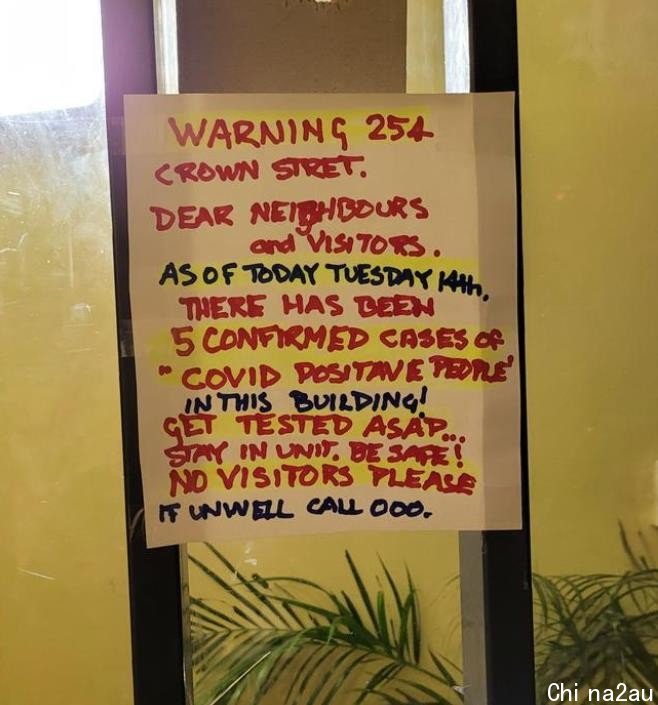 WARNING 254
CROWN STRET.
DEAR NEIGHBOURS
and VISITORS.
AS OF TODAY TUESDAY 14th.
THERE HAS BEEN
5 CONFIRMED CASES OF
"COVID POSITAVE PEOPLE'
IN THIS BUILDING!
GET TESTED ASAP...
STAY IN UNIT. BE SAFE!
NO VISITORS PLEASE
IF UNWELL CALL 000.
Chi na2au